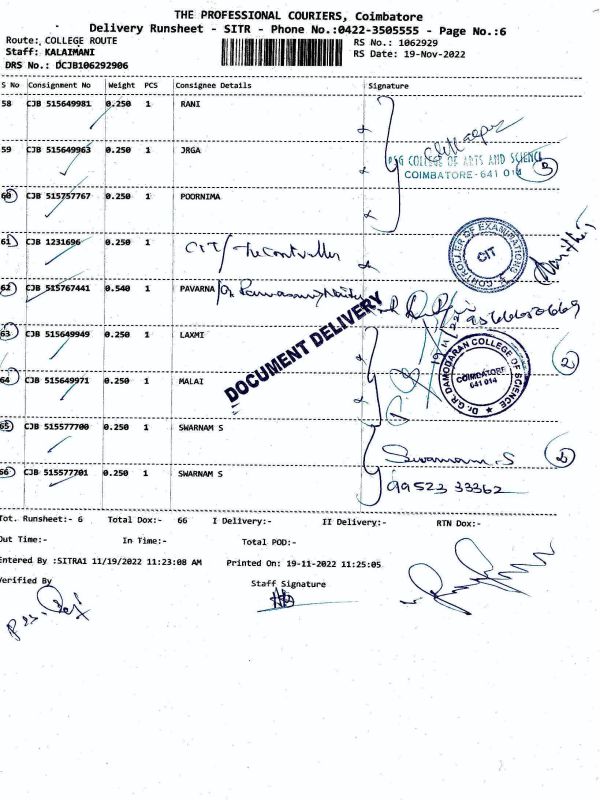 THE PROFESSIONAL COURIERS, Coimbatore
Delivery Runsheet - SITR - Phone No.:0422-3505555 - Page No.:6
Route: COLLEGE ROUTE
RS No.: 1062929
Staff: KALAIMANI
RS Date: 19-Nov-2022
DRS No.: DCJB106292906
S No Consignment No Weight PCS Consignee Details Signature
58 CJB 515649981 0.250 1 RANI
59 CJB 515649963 0.250 1 JRGA
PSG COLLEGE OF ARTS AND SCIENCE
COIMBATORE - 641 014
3
60 CJB 515757767 0.250 1 POORNIMA
61 CJB 1231696 0.250 1 CIT/ The Controller
CONTROLLER OF EXAMINATIONS
CIT
62 CJB 515767441 0.540 1 PAVARNA
DOCUMENT DELIVERY
63 CJB 515649949 0.250 1 LAXMI
Dr. G.R. DAMODARAN COLLEGE OF SCIENCE
COIMBATORE
641 014
2
64 CJB 515649971 0.250 1 MALAI
65 CJB 515577700 0.250 1 SWARNAM S
Swarnam. S
2
66 CJB 515577701 0.250 1 SWARNAM S
99523 33362
Tot. Runsheet:- 6 Total Dox:- 66 I Delivery:- II Delivery:- RTN Dox:-
Out Time:- In Time:- Total POD:-
Entered By :SITRA1 11/19/2022 11:23:08 AM Printed On: 19-11-2022 11:25:05
Verified By
Staff Signature